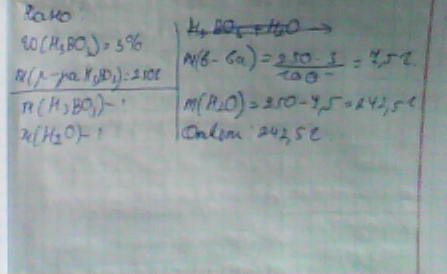 Дано:
W(H₃BO₃)=3%
m(р-ра H₃BO₃)=250г
m(H₃BO₃)-?
m(H₂O)-?
H₃BO₃+H₂O →
m(в-ва)=250·3/100=7,5г.
m(H₂O)=250-7,5=242,5г
Ответ: 242,5г